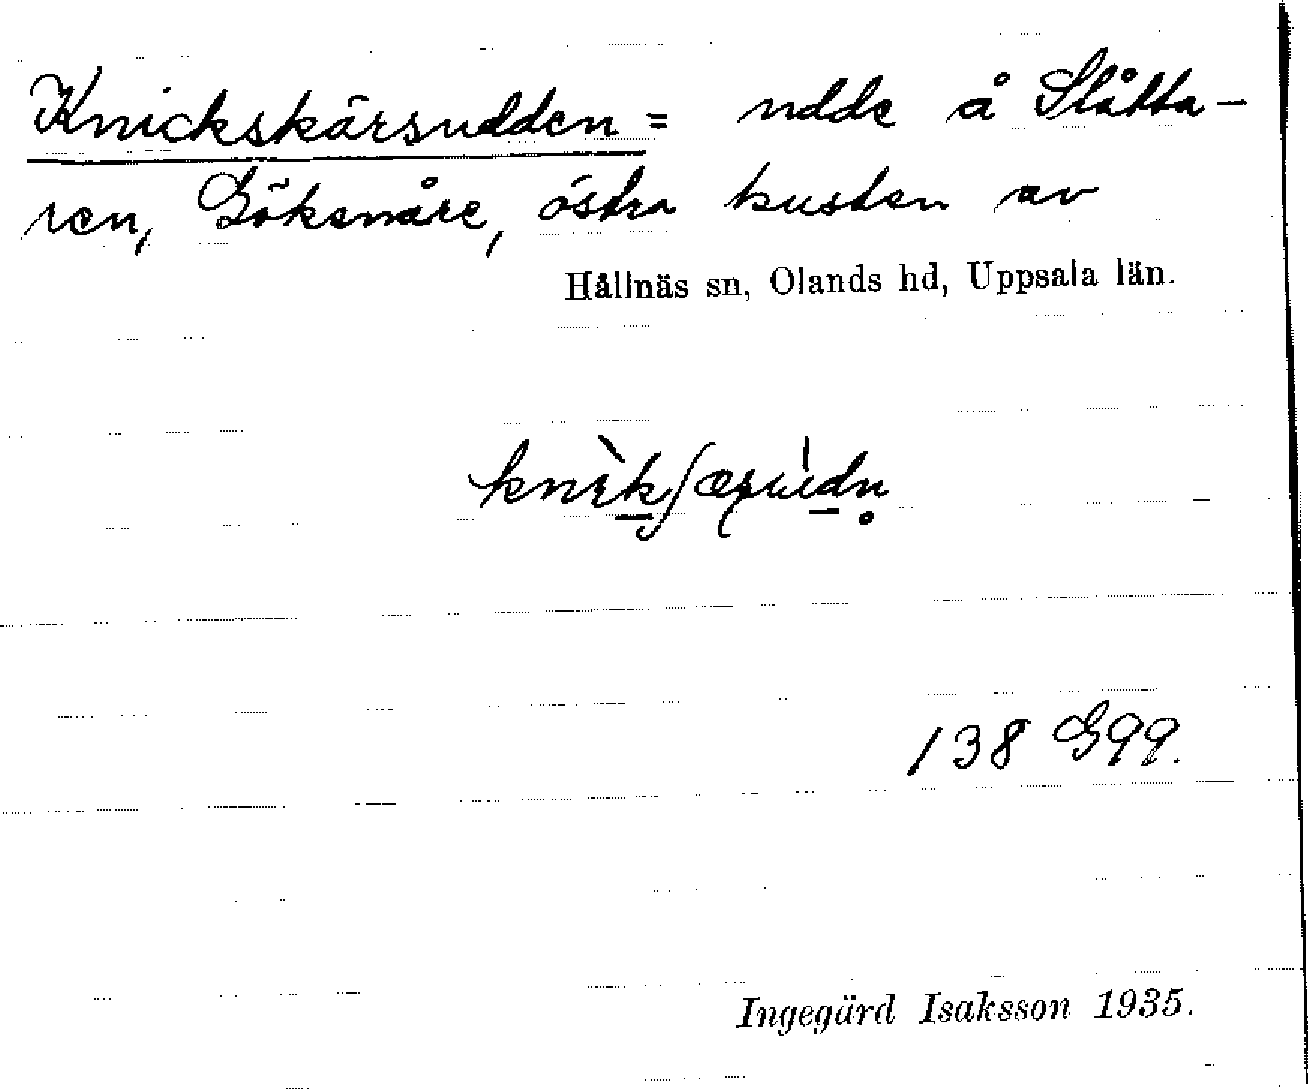 Knickskärsudden = udde å Slåtta-
ren, Göksnåre, östra kusten av
Hållnäs sn, Olands hd, Uppsala län.
138 G99.
Ingegärd Isaksson 1935.